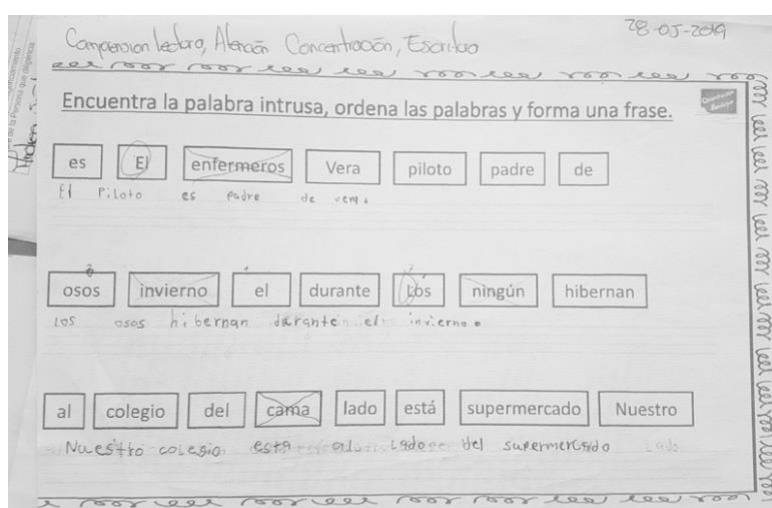 Comprension lectora, Atención Concentración, Escritura
28-05-2019
Encuentra la palabra intrusa, ordena las palabras y forma una frase.
es El enfermeros Vera piloto padre de
El Piloto es padre de vera
osos invierno el durante Los ningún hibernan
Los osos hibernan durante el invierno
al colegio del cama lado está supermercado Nuestro
Nuestro colegio esta al Lado del supermercado